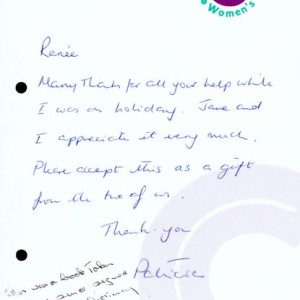 Women's
Renée
Many thanks for all your help while
I was on holiday. Jane and
I appreciate it very much.
Please accept this as a gift
from the two of us.
Thank you
Patricia
This was a book token